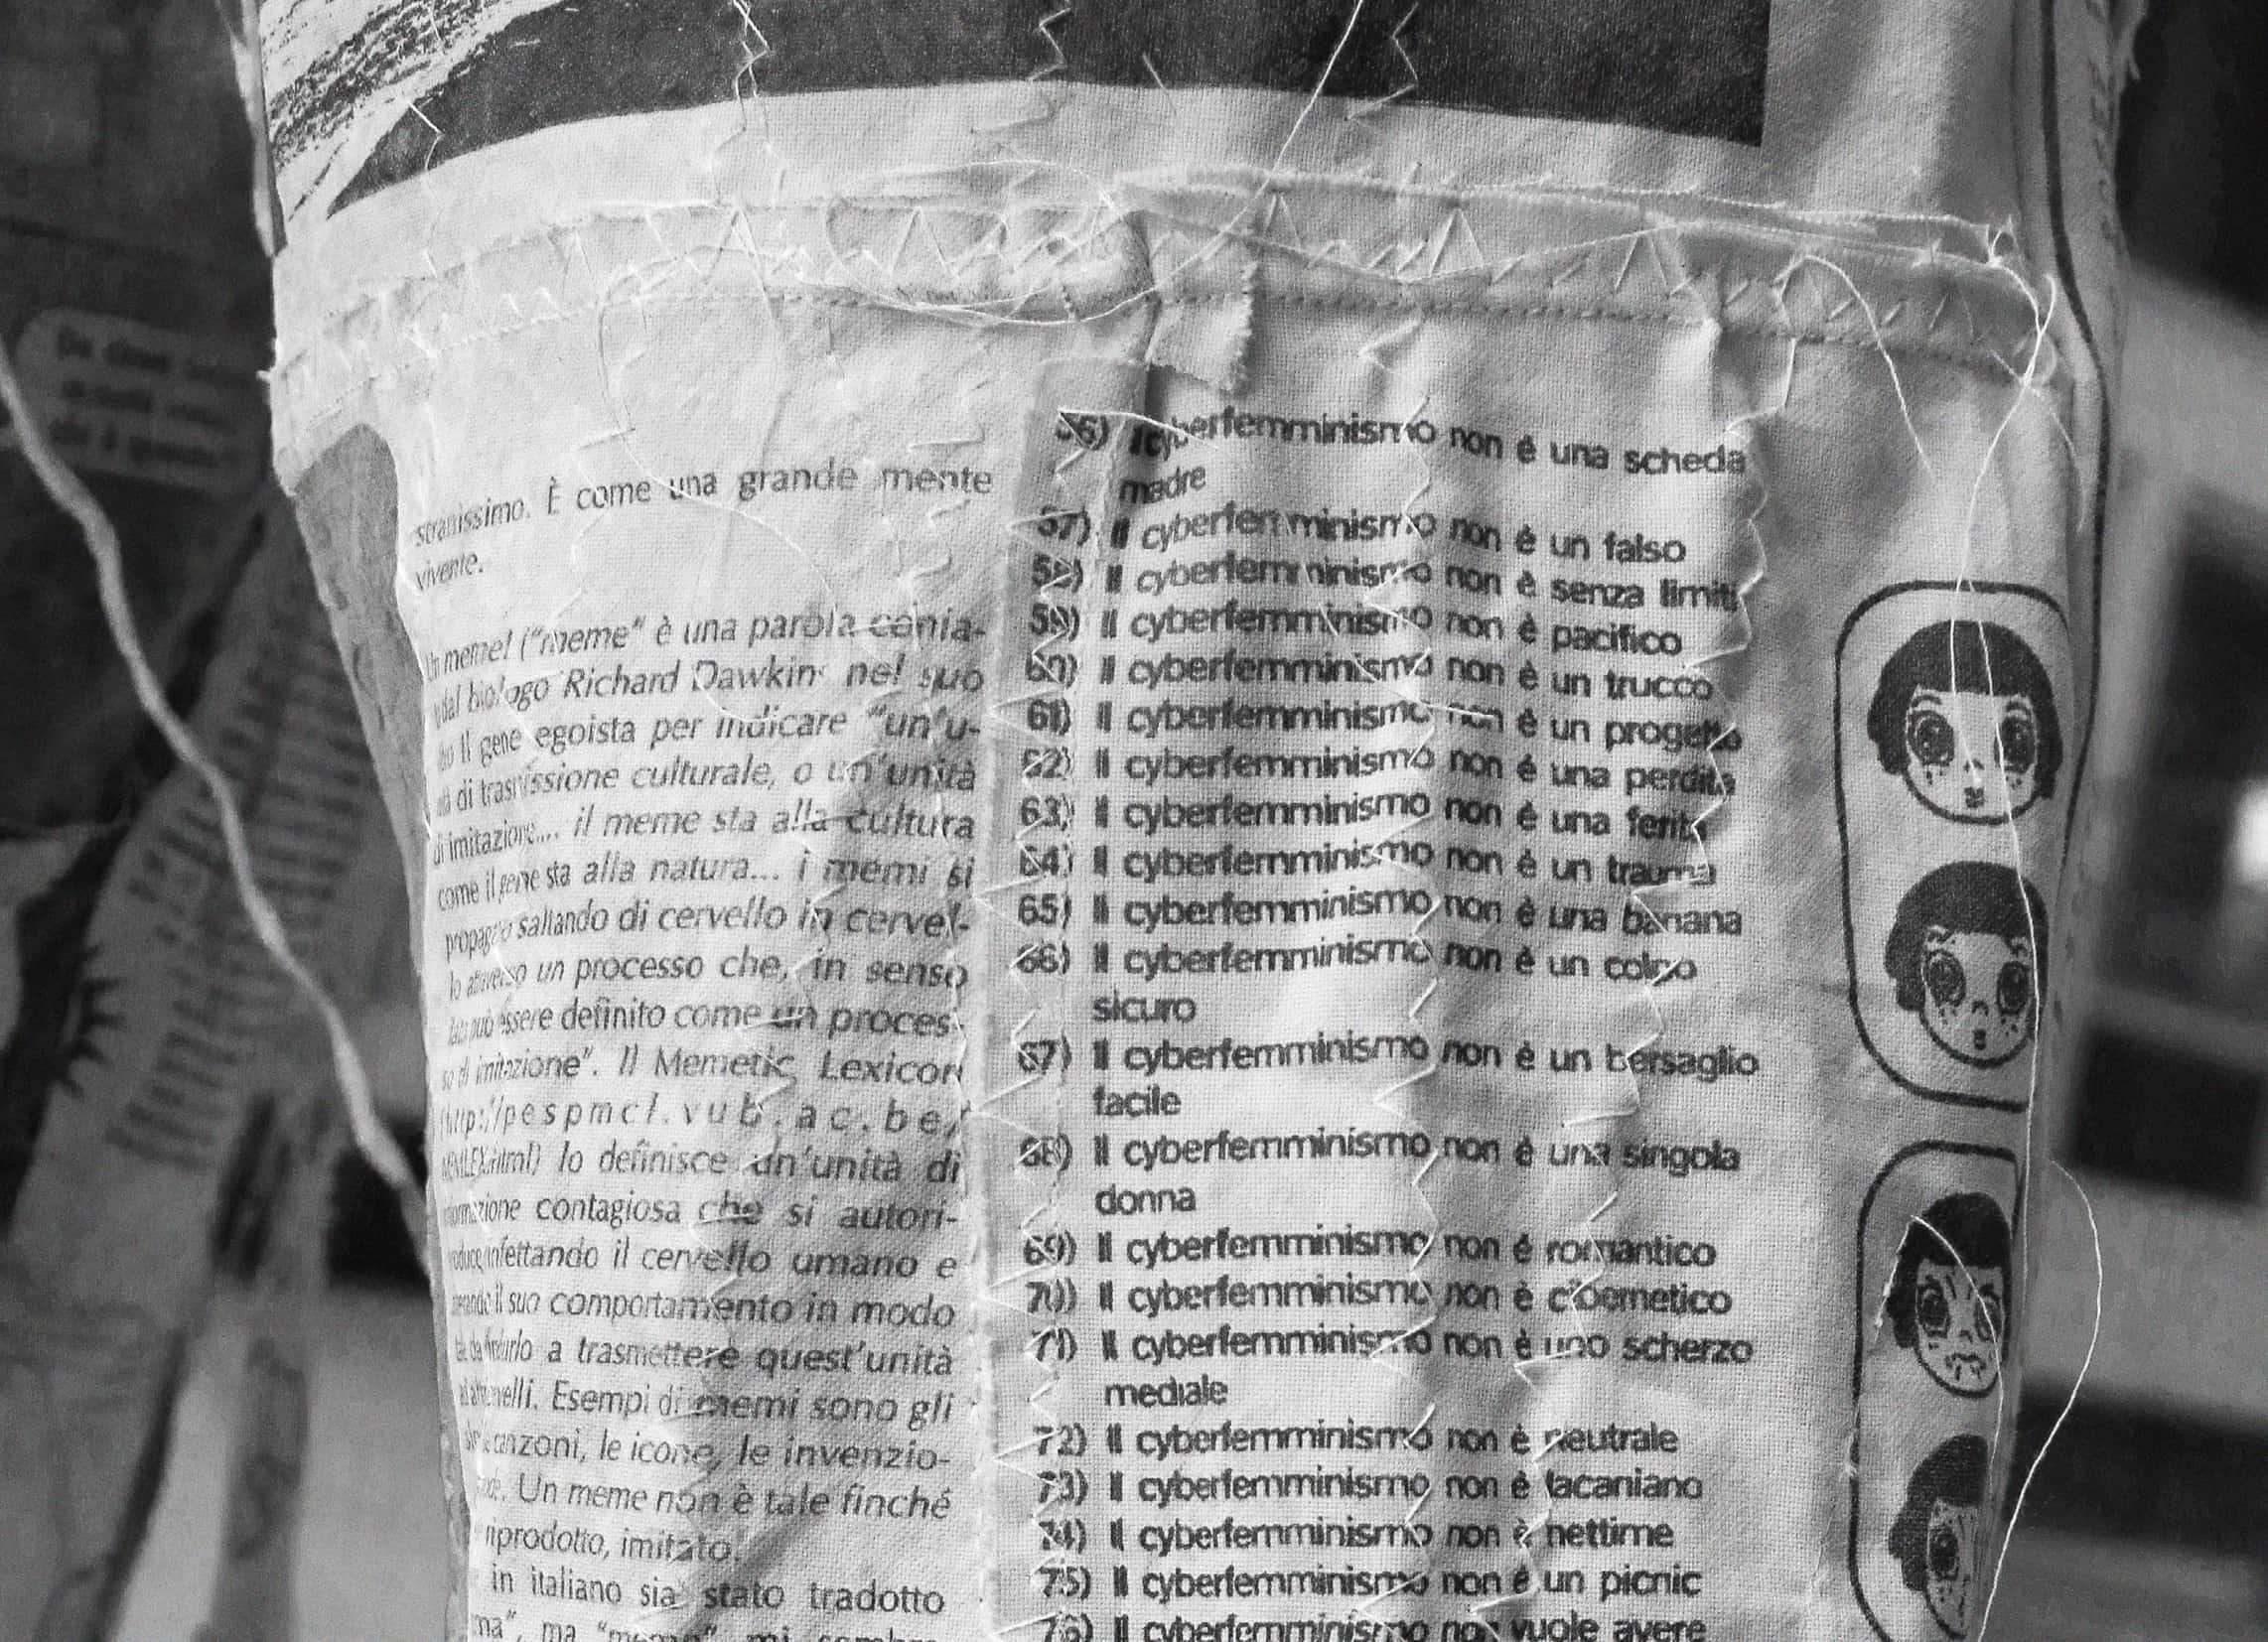 stranissimo. È come una grande mente
vivente.
Un meme! ("meme" è una parola conia-
dal biologo Richard Dawkins nel suo
Il gene egoista per indicare "un'u-
di trasmissione culturale, o un'unità
di imitazione... il meme sta alla cultura
come il gene sta alla natura... i memi si
propagano saltando di cervello in cervel-
lo attraverso un processo che, in senso
può essere definito come un proces-
so di imitazione". Il Memetic Lexicon
(http://pespmc1.vub.ac.be/
MEMLEX.html) lo definisce un'unità di
contagiosa che si autori-
infettando il cervello umano e
il suo comportamento in modo
a trasmettere quest'unità
Esempi di memi sono gli
canzoni, le icone, le invenzio-
Un meme non è tale finché
riprodotto, imitato.
in italiano sia stato tradotto
ma "meme" mi
56) Il cyberfemminismo non è una scheda
madre
57) Il cyberfemminismo non è un falso
58) Il cyberfemminismo non è senza limiti
59) Il cyberfemminismo non è pacifico
60) Il cyberfemminismo non è un trucco
61) Il cyberfemminismo non è un progetto
62) Il cyberfemminismo non é una perdita
63) Il cyberfemminismo non è una ferita
64) Il cyberfemminismo non è un trauma
65) Il cyberfemminismo non è una banana
66) Il cyberfemminismo non è un colpo
sicuro
67) Il cyberfemminismo non è un bersaglio
facile
68) Il cyberfemminismo non è una singola
donna
69) Il cyberfemminismo non é romantico
70) Il cyberfemminismo non è cibernetico
71) Il cyberfemminismo non è uno scherzo
mediale
72) Il cyberfemminismo non è neutrale
73) Il cyberfemminismo non è lacaniano
74) Il cyberfemminismo non è nettime
75) Il cyberfemminismo non é un picnic
76) Il cyberfemminismo non vuole avere